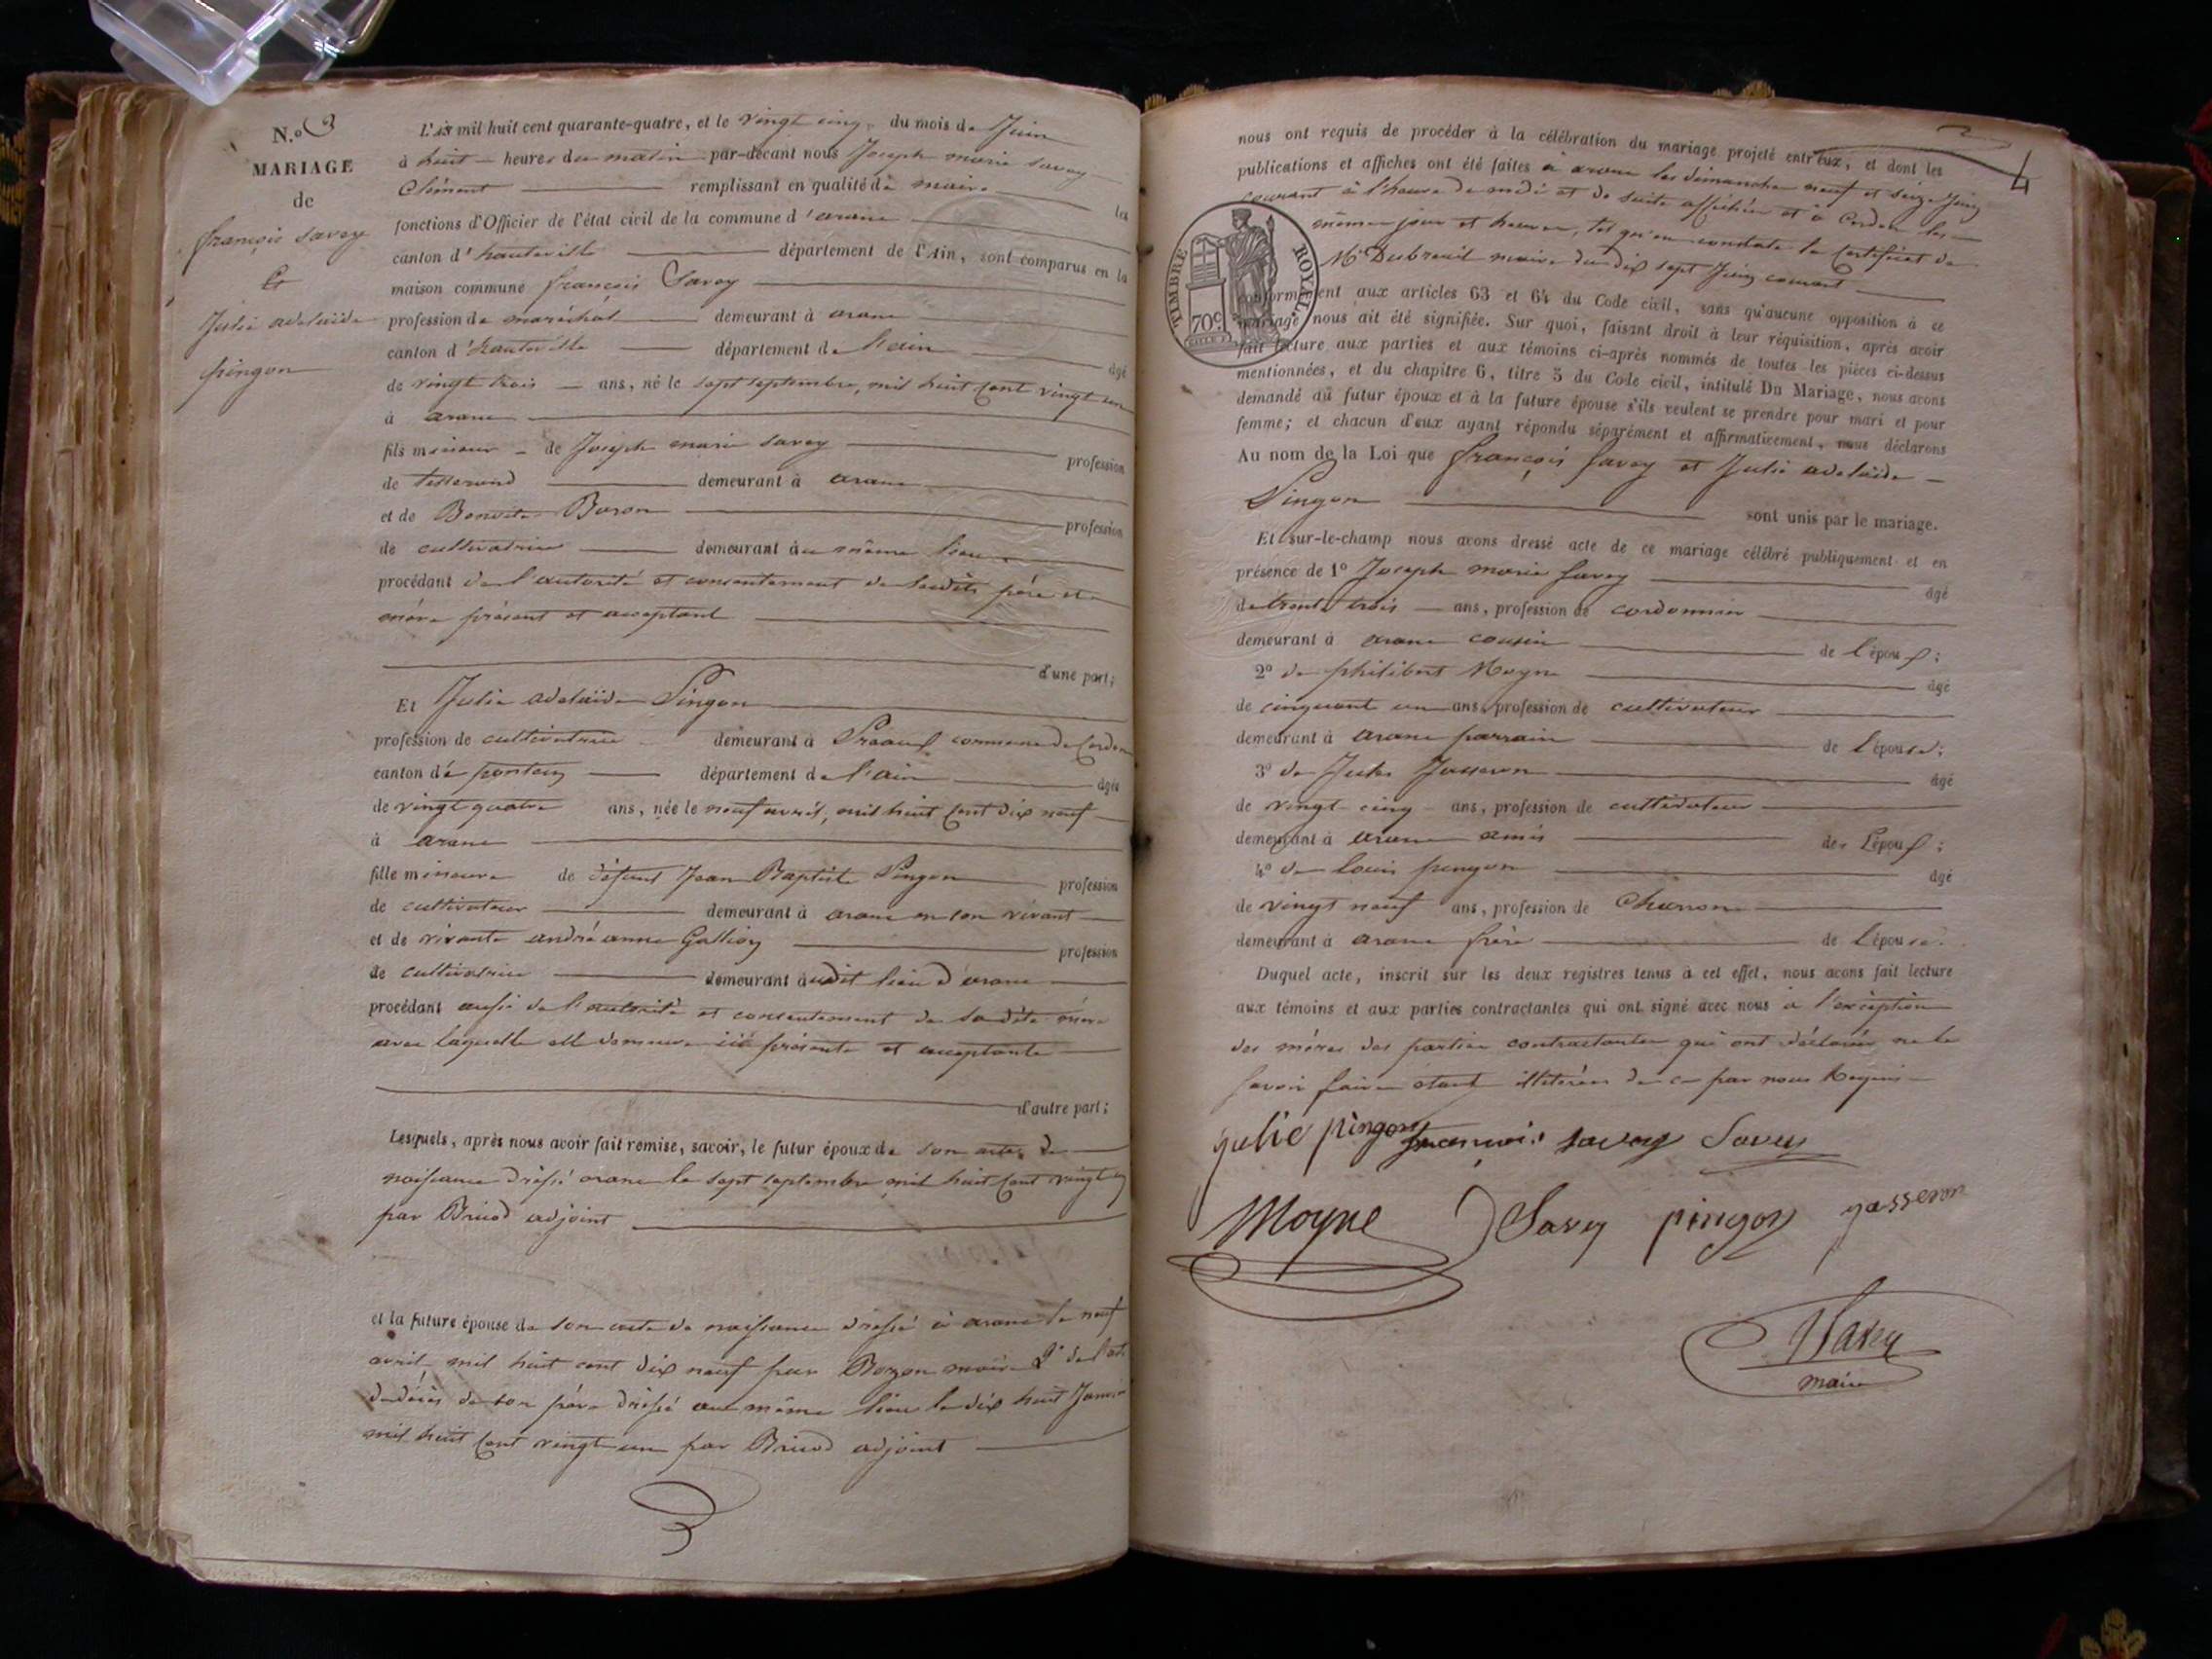 N.o 3
MARIAGE
de
françois Savey
Et
Julie adelaïde
pingon
L'an mil huit cent quarante-quatre, et le vingt cinq du mois de Juin
à huit heures du matin par-devant nous Joseph marie Savey
Clément remplissant en qualité de maire les
fonctions d'Officier de l'état civil de la commune d'arane
canton d'hauteville département de l'Ain, sont comparus en la
maison commune françois Savey
profession de maréchal demeurant à arane
canton d'hauteville département de l'ain âgé
de vingt trois ans, né le sept septembre, mil huit cent vingt un
à arane
fils mineur de Joseph marie Savey profession
de tisserand demeurant à arane
et de Benoite Boron profession
de cultivatrice demeurant au même lieu
procédant de l'autorité et consentement de sesdits père et
mère présent et acceptant
d'une part;
Et Julie adelaïde Pingon
profession de cultivatrice demeurant à commune de Cerdon
canton de poncin département de l'ain âgée
de vingt quatre ans, née le neuf avril, mil huit cent dix neuf
à arane
fille mineure de défunt Jean Baptiste Pingon profession
de cultivateur demeurant à arane en son vivant
et de vivante andréanne Galliou profession
de cultivatrice demeurant audit lieu d'arane
procédant aussi de l'autorité et consentement de sadite mère
avec laquelle elle demeure ici présente et acceptante
d'autre part;
Lesquels, après nous avoir fait remise, savoir, le futur époux de son acte de
naissance dressé arane le sept septembre mil huit cent vingt un
par Bricod adjoint
et la future épouse de son acte de naissance dressé à arane le neuf
avril mil huit cent dix neuf par Bozon maire 2° de l'acte
de décès de son père dressé au même lieu le dix huit Janvier
mil huit cent vingt un par Bricod adjoint
nous ont requis de procéder à la célébration du mariage projeté entr'eux, et dont les
publications et affiches ont été faites à arane les dimanches neuf et seize Juin
courant à l'heure de midi et de suite affichées et à Cerdon les
mêmes jours et heures, tel qu'en constate le certificat de
Mr Dubreuil maire du dix sept Juin courant
TIMBRE ROYAL
70c
conformément aux articles 63 et 64 du Code civil, sans qu'aucune opposition à ce
mariage nous ait été signifiée. Sur quoi, faisant droit à leur réquisition, après avoir
fait lecture aux parties et aux témoins ci-après nommés de toutes les pièces ci-dessus
mentionnées, et du chapitre 6, titre 5 du Code civil, intitulé Du Mariage, nous avons
demandé au futur époux et à la future épouse s'ils veulent se prendre pour mari et pour
femme; et chacun d'eux ayant répondu séparément et affirmativement, nous déclarons
Au nom de la Loi que françois Savey et Julie adelaïde
Pingon sont unis par le mariage.
Et sur-le-champ nous avons dressé acte de ce mariage célébré publiquement et en
présence de 1° Joseph marie Savey âgé
de trente trois ans, profession de cordonnier
demeurant à arane cousin de l'époux;
2° de philibert Moyne âgé
de cinquante un ans, profession de cultivateur
demeurant à arane parrain de l'épouse;
3° de Jules Josseron âgé
de vingt cinq ans, profession de cultivateur
demeurant à arane amis de l'époux;
4° de louis pingon âgé
de vingt neuf ans, profession de Charron
demeurant à arane frère de l'épouse.
Duquel acte, inscrit sur les deux registres tenus à cet effet, nous avons fait lecture
aux témoins et aux parties contractantes qui ont signé avec nous à l'exception
des mères des parties contractantes qui ont déclaré ne le
savoir faire étant illitérées de ce par nous Requis
julie pingon francois savey Savey
Moyne J Savey pingon jasseron
Savey
maire